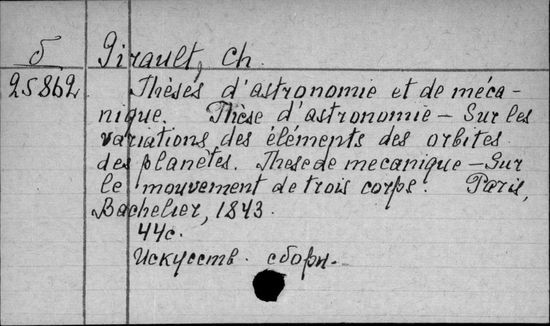 б Girault, Ch.
25862 Thèses d'astronomie et de méca-
nique. Thèse d'astronomie – Sur les
variations des éléments des orbites
des planètes. These de mecanique – Sur
le mouvement de trois corps. Paris,
Bachelier, 1843.
44с.
Искусств. сборн.